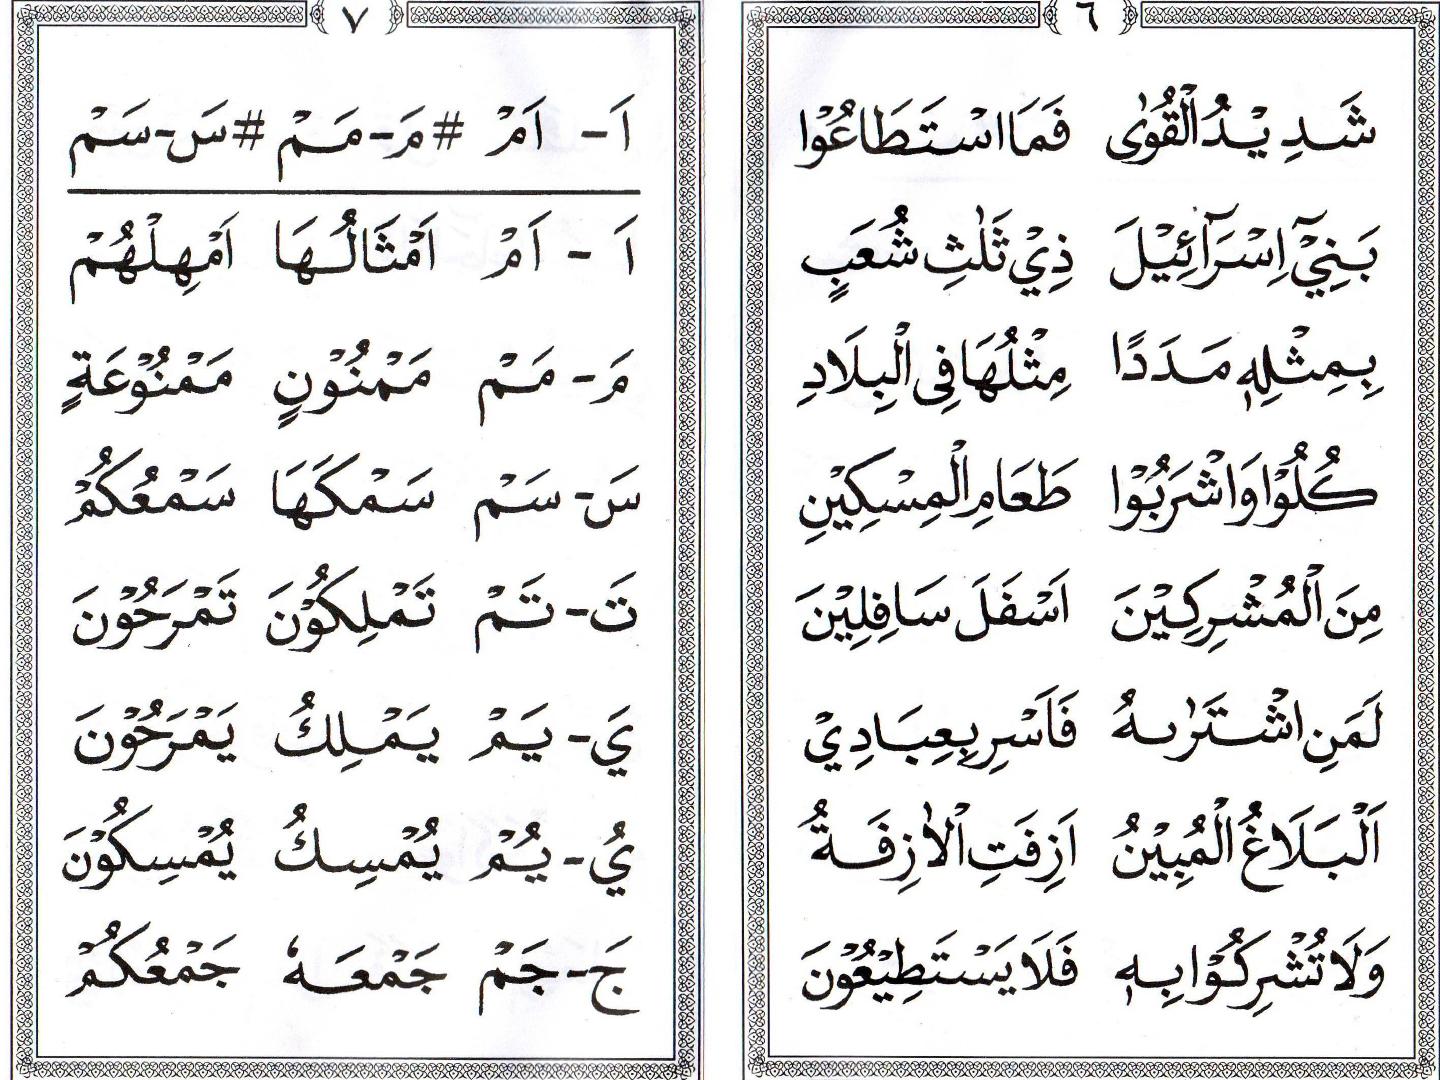 ٦
شَدِيْدُ الْقُوٰى فَمَا اسْتَطَاعُوْا
بَنِيْٓ اِسْرَآئِيْلَ ذِيْ ثَلٰثِ شُعَبٍ
بِمِثْلِهٖ مَدَدًا مِثْلُهَا فِى الْبِلَادِ
كُلُوْا وَاشْرَبُوْا طَعَامِ الْمِسْكِيْنِ
مِنَ الْمُشْرِكِيْنَ اَسْفَلَ سَافِلِيْنَ
لَمَنِ اشْتَرٰىهُ فَاَسْرِ بِعِبَادِيْ
اَلْبَلَاغُ الْمُبِيْنُ اَزِفَتِ الْاٰزِفَةُ
وَلَا تُشْرِكُوْا بِهٖ فَلَا يَسْتَطِيْعُوْنَ
٧
اَ - اَمْ # مَ - مَمْ # سَ - سَمْ
اَ - اَمْ اَمْثَالُهَا اَمْهِلْهُمْ
مَ - مَمْ مَمْنُوْنٍ مَمْنُوْعَةٍ
سَ - سَمْ سَمْكَهَا سَمْعُكُمْ
تَ - تَمْ تَمْلِكُوْنَ تَمْرَحُوْنَ
يَ - يَمْ يَمْلِكُ يَمْرَحُوْنَ
يُ - يُمْ يُمْسِكُ يُمْسِكُوْنَ
جَ - جَمْ جَمْعَهٗ جَمْعُكُمْ